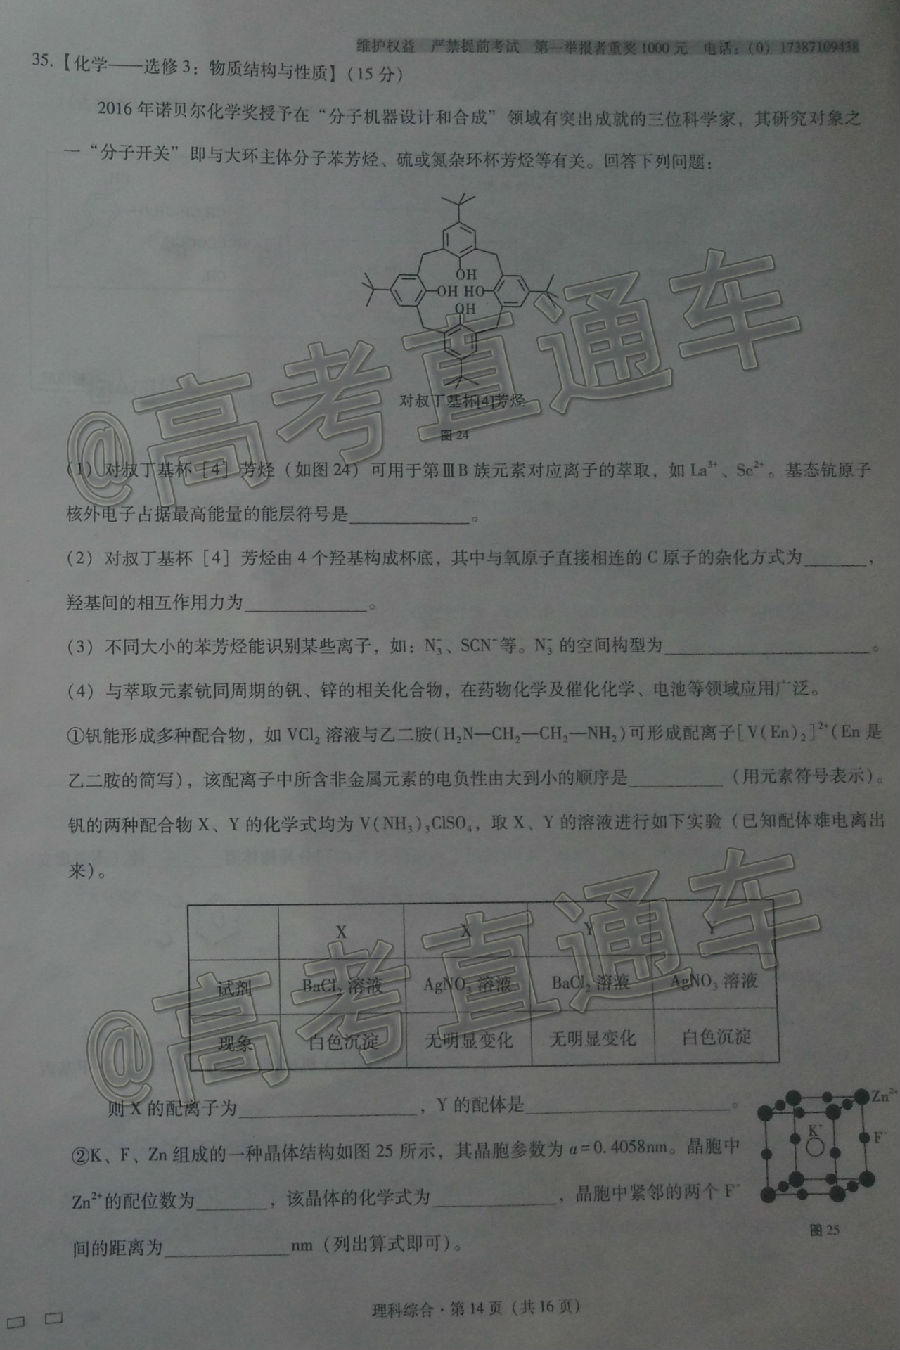 维护权益 严禁提前考试 第一举报者重奖1000元 电话:(0)17387109438
35.【化学——选修3:物质结构与性质】(15分)
2016年诺贝尔化学奖授予在“分子机器设计和合成”领域有突出成就的三位科学家,其研究对象之
一“分子开关”即与大环主体分子苯芳烃、硫或氮杂环杯芳烃等有关。回答下列问题:
OH
OH HO
OH
对叔丁基杯[4]芳烃
图24
(1)对叔丁基杯[4]芳烃(如图24)可用于第ⅢB族元素对应离子的萃取,如La³⁺、Sc²⁺。基态钪原子
核外电子占据最高能量的能层符号是________。
(2)对叔丁基杯[4]芳烃由4个羟基构成杯底,其中与氧原子直接相连的C原子的杂化方式为______,
羟基间的相互作用力为________。
(3)不同大小的苯芳烃能识别某些离子,如:N₃⁻、SCN⁻等。N₃⁻的空间构型为____________。
(4)与萃取元素钪同周期的钒、锌的相关化合物,在药物化学及催化化学、电池等领域应用广泛。
①钒能形成多种配合物,如VCl₂溶液与乙二胺(H₂N—CH₂—CH₂—NH₂)可形成配离子[V(En)₂]²⁺(En是
乙二胺的简写),该配离子中所含非金属元素的电负性由大到小的顺序是________(用元素符号表示)。
钒的两种配合物X、Y的化学式均为V(NH₃)₃ClSO₄,取X、Y的溶液进行如下实验(已知配体难电离出
来)。
X X Y Y
试剂 BaCl₂溶液 AgNO₃溶液 BaCl₂溶液 AgNO₃溶液
现象 白色沉淀 无明显变化 无明显变化 白色沉淀
则X的配离子为____________,Y的配体是____________。
②K、F、Zn组成的一种晶体结构如图25所示,其晶胞参数为a=0.4058nm。晶胞中
Zn²⁺的配位数为______,该晶体的化学式为________,晶胞中紧邻的两个F⁻
间的距离为________nm(列出算式即可)。
Zn²⁺
K⁺
F⁻
图25
理科综合·第14页(共16页)
@高考直通车
@高考直通车